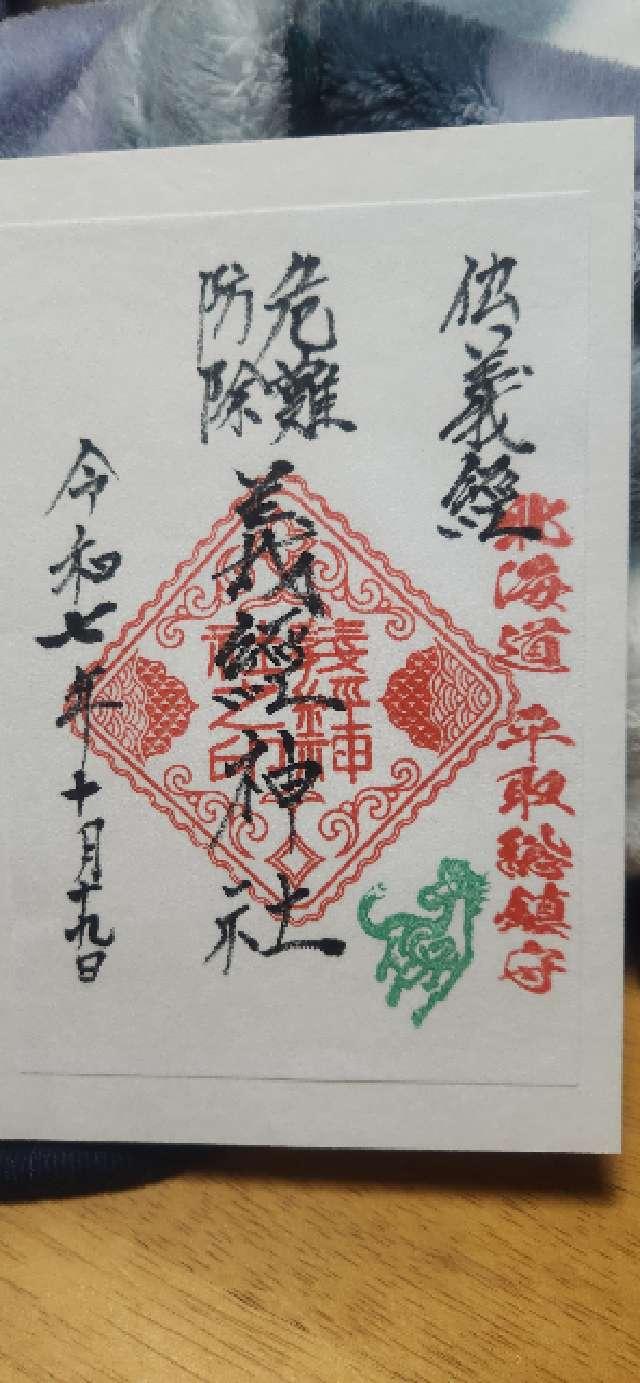 仏義經
北海道 平取総鎮守
危難
防除
義經神社
義経神社之印
令和七年十月十九日